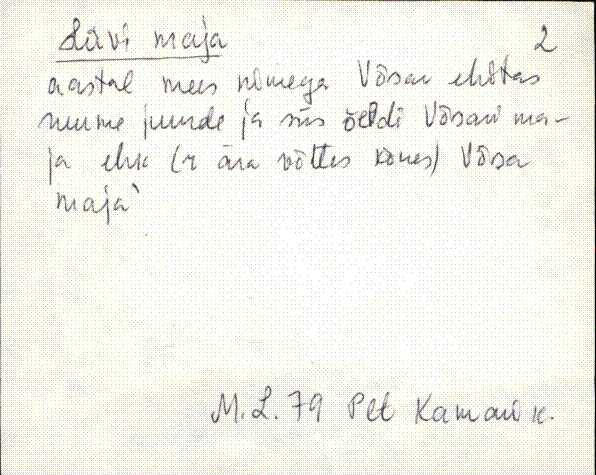 Lävi maja 2
aastal mees nimega Võsar ehitas
nurme juurde ja siis öeldi Võsari ma-
ja ehk (r ära võttes kõnes) Võsa
maja`
M.L. 79 Plt Kamari k.